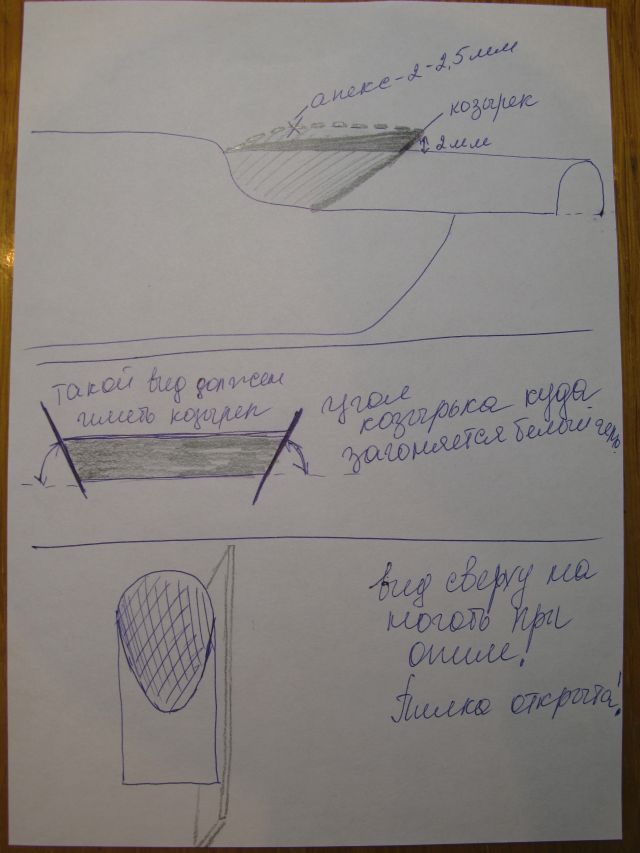 апекс-2-2,5мм
козырек
2мм
такой вид должен
иметь козырек
угол
козырька куда
загоняется белый гель.
вид сверху на
ноготь при
опиле!
Пилка открыта!